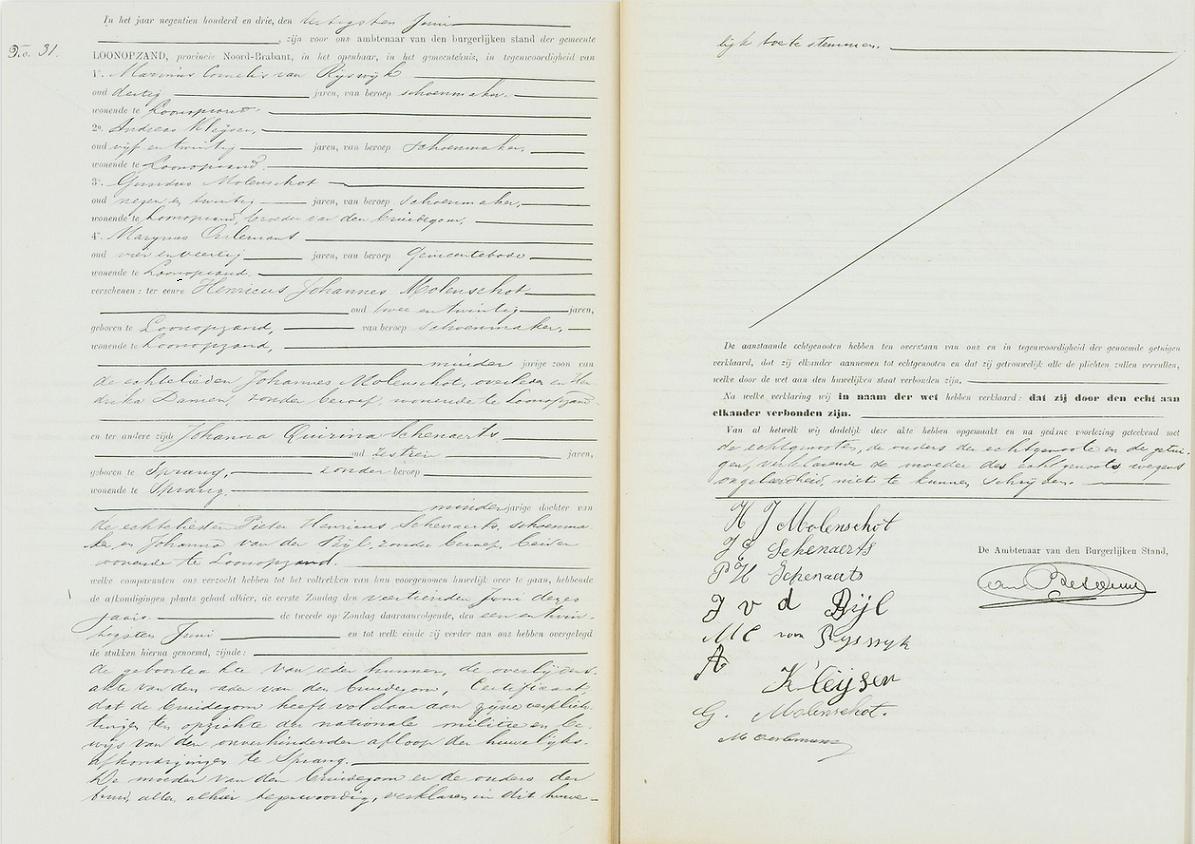 No. 31.
In het jaar negentien honderd en drie, den dertigsten Juni
, zijn voor ons ambtenaar van den burgerlijken stand der gemeente
LOONOPZAND, provincie Noord-Brabant, in het openbaar, in het gemeentehuis, in tegenwoordigheid van
1e. Marinus Cornelis van Rijswijk
oud dertig jaren, van beroep schoenmaker.
wonende te Loonopzand.
2e. Andreas Kleijsen,
oud vijf en twintig jaren, van beroep schoenmaker,
wonende te Loonopzand.
3e. Gerardus Molenschot
oud negen en twintig jaren, van beroep schoenmaker,
wonende te Loonopzand, broeder van den bruidegom,
4e. Marijnus Oerlemans
oud vier en veertig jaren, van beroep Gemeentebode
wonende te Loonopzand.
verschenen: ter eenre Henricus Johannes Molenschot
oud twee en twintig jaren,
geboren te Loonopzand, van beroep schoenmaker,
wonende te Loonopzand,
minder jarige zoon van
de echtelieden Johannes Molenschot, overleden en Hen
drika Damen, zonder beroep, wonende te Loonopzand
en ter andere zijde Johanna Quirina Schenaerts
oud zestien jaren,
geboren te Sprang, zonder beroep
wonende te Sprang.
minder jarige dochter van
de echtelieden Pieter Henricus Schenaerts, schoenma
ker en Johanna van der Bijl, zonder beroep, beiden
wonende te Loonopzand.
welke comparanten ons verzocht hebben tot het voltrekken van hun voorgenomen huwelijk over te gaan, hebbende
de afkondigingen plaats gehad alhier, de eerste Zondag den veertienden Juni dezes
jaars de tweede op Zondag daaraanvolgende, den een en twin
tigsten Juni en tot welk einde zij verder aan ons hebben overgelegd
de stukken hierna genoemd, zijnde:
de geboorteakte van ieder hunner, de overlijdens
akte van den vader van den bruidegom, Certificaat
dat de bruidegom heeft voldaan aan zijne verplich
tingen ten opzichte der nationale militie en be
wijs van den onverhinderden afloop der huwelijks-
afkondigingen te Sprang.
De moeder van den bruidegom en de ouders der
bruid, allen alhier tegenwoordig, verklaren in dit huwe-
lijk toe te stemmen.
De aanstaande echtgenooten hebben ten overstaan van ons en in tegenwoordigheid der genoemde getuigen
verklaard, dat zij elkander aannemen tot echtgenooten en dat zij getrouwelijk alle de plichten zullen vervullen,
welke door de wet aan den huwelijken staat verbonden zijn.
Na welke verklaring wij in naam der wet hebben verklaard: dat zij door den echt aan
elkander verbonden zijn.
Van al hetwelk wij dadelijk deze akte hebben opgemaakt en na gedane voorlezing geteekend met
de echtgenooten, de ouders der echtgenoote en de getui-
gen, verklarende de moeder des echtgenoots wegens
ongeleerdheid, niet te kunnen schrijven.
H J Molenschot
J Q Schenaerts
P H Schenaarts
J v d Bijl
M C van Rysswyk
A
Kleijsen
G. Molenschot.
M Oerlemans
De Ambtenaar van den Burgerlijken Stand,